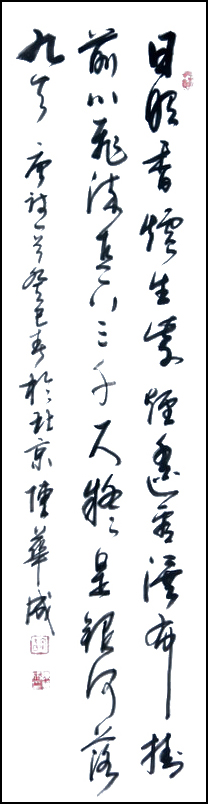 日照香爐生紫煙遙看瀑布掛
前川飛流直下三千尺疑是銀河落
九天 唐詩一首癸巳春於北京陳華成